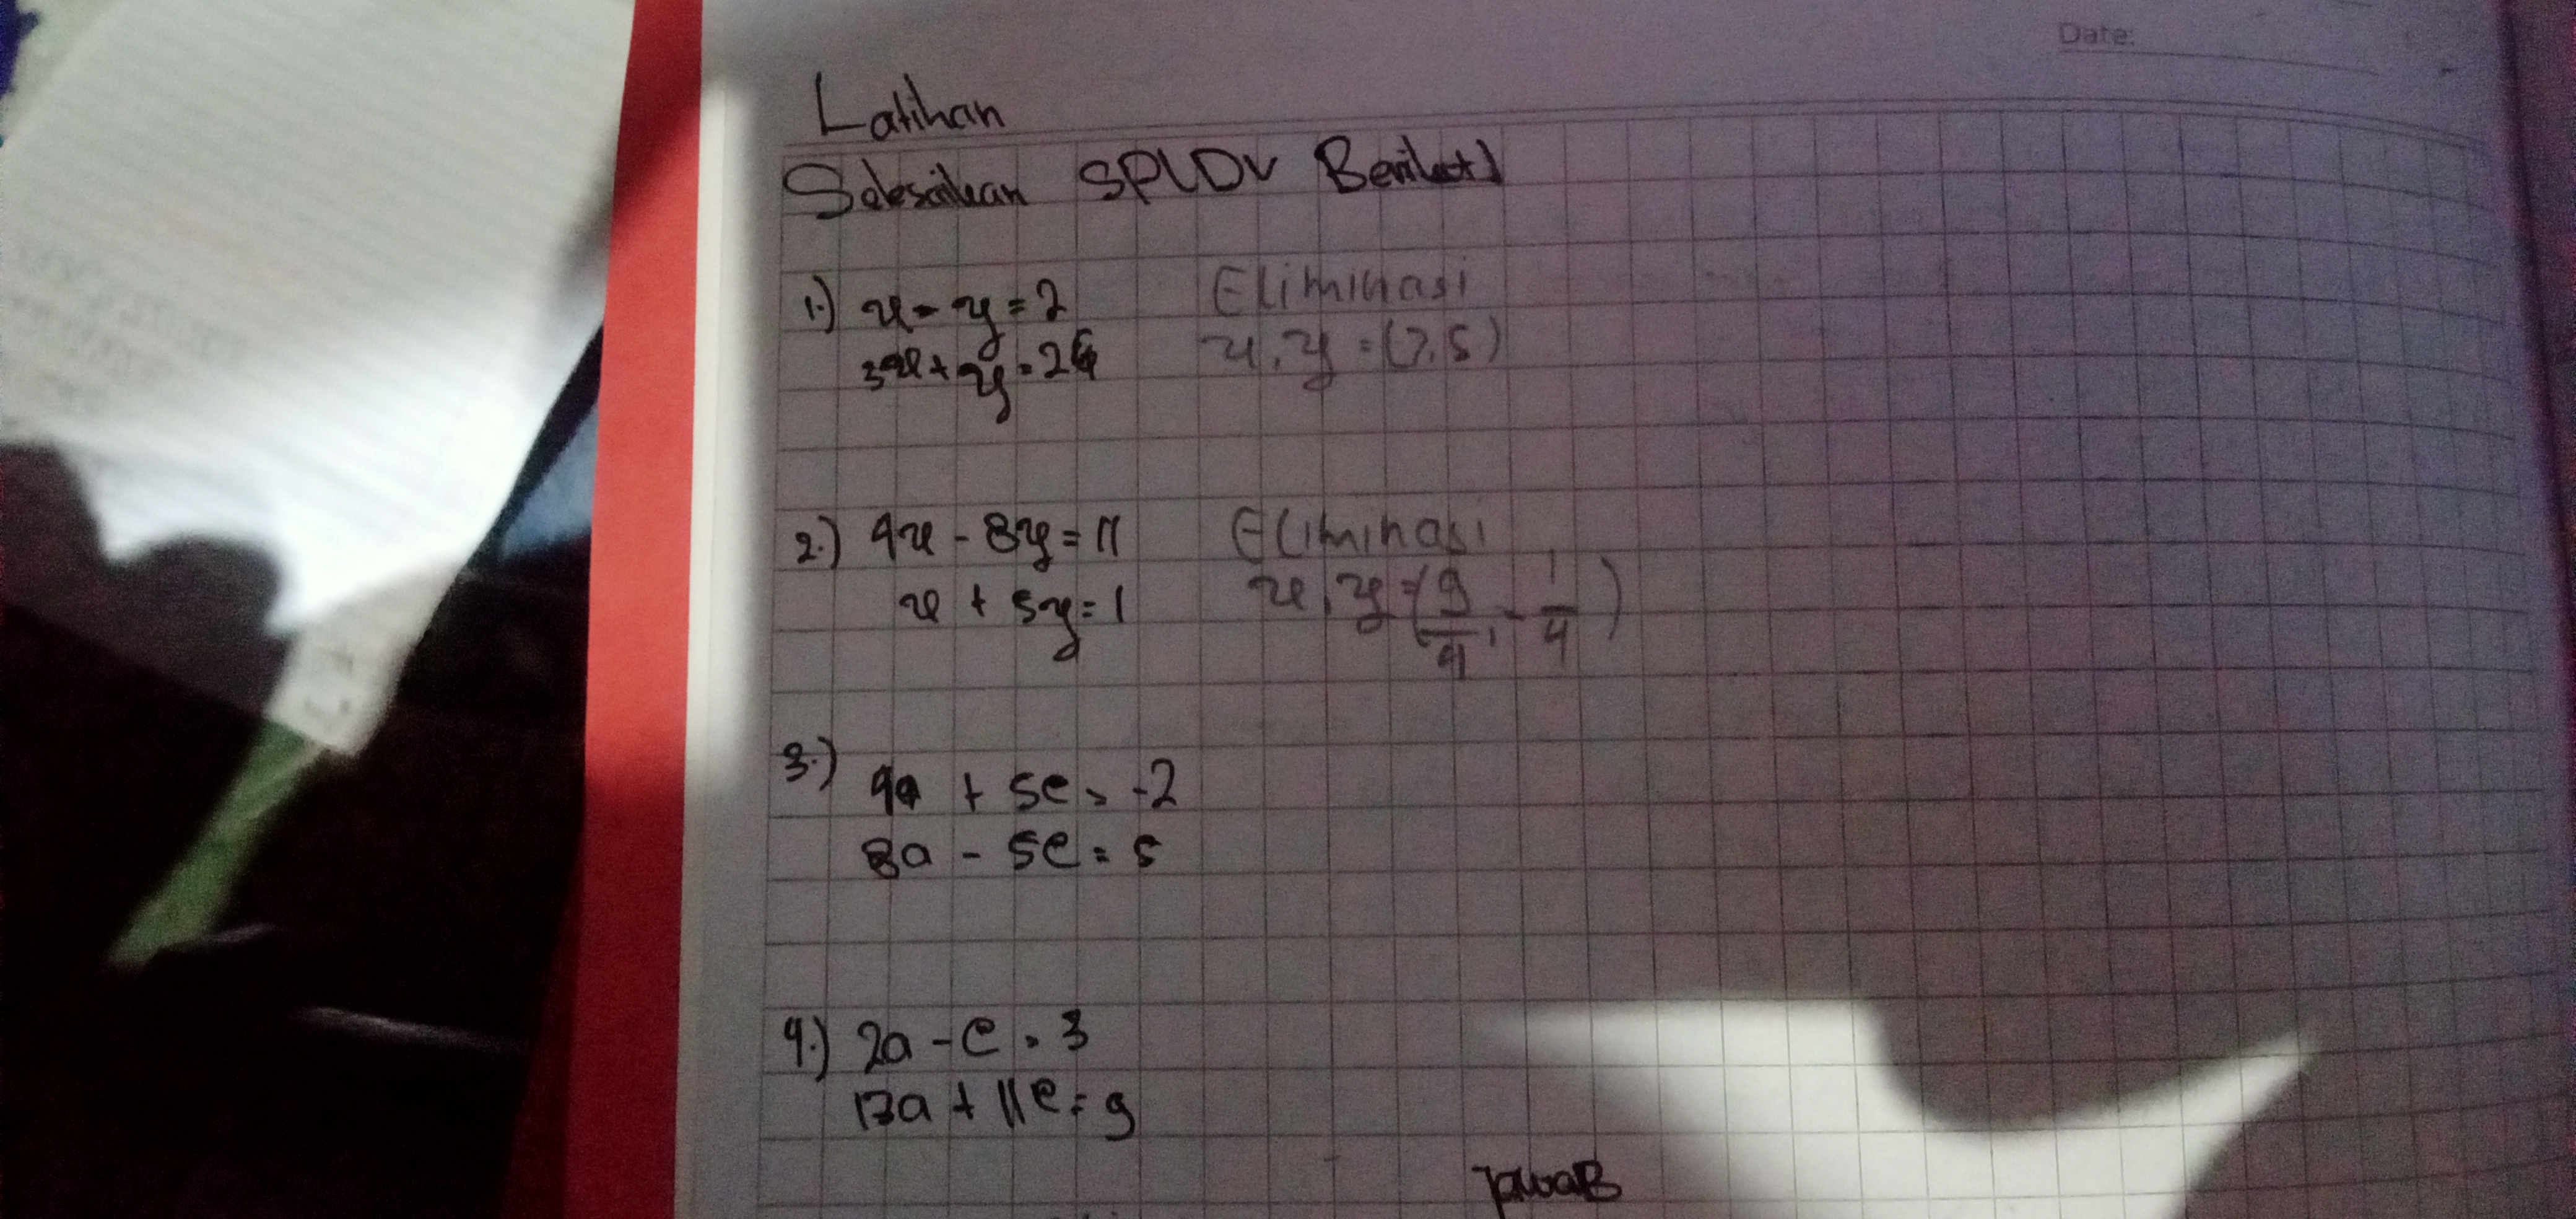 Date:
Latihan
Selesaikan SPLDV Berikut
1.) x - y = 2 Eliminasi
3x + y = 26 x, y = (7, 5)
2.) 4x - 8y = 11 Eliminasi
x + 5y = 1 x, y = (9/4, - 1/4)
3.) 4a + 5e = -2
8a - 5e = 5
4.) 2a - e = 3
13a + 11e = 9
JawaB